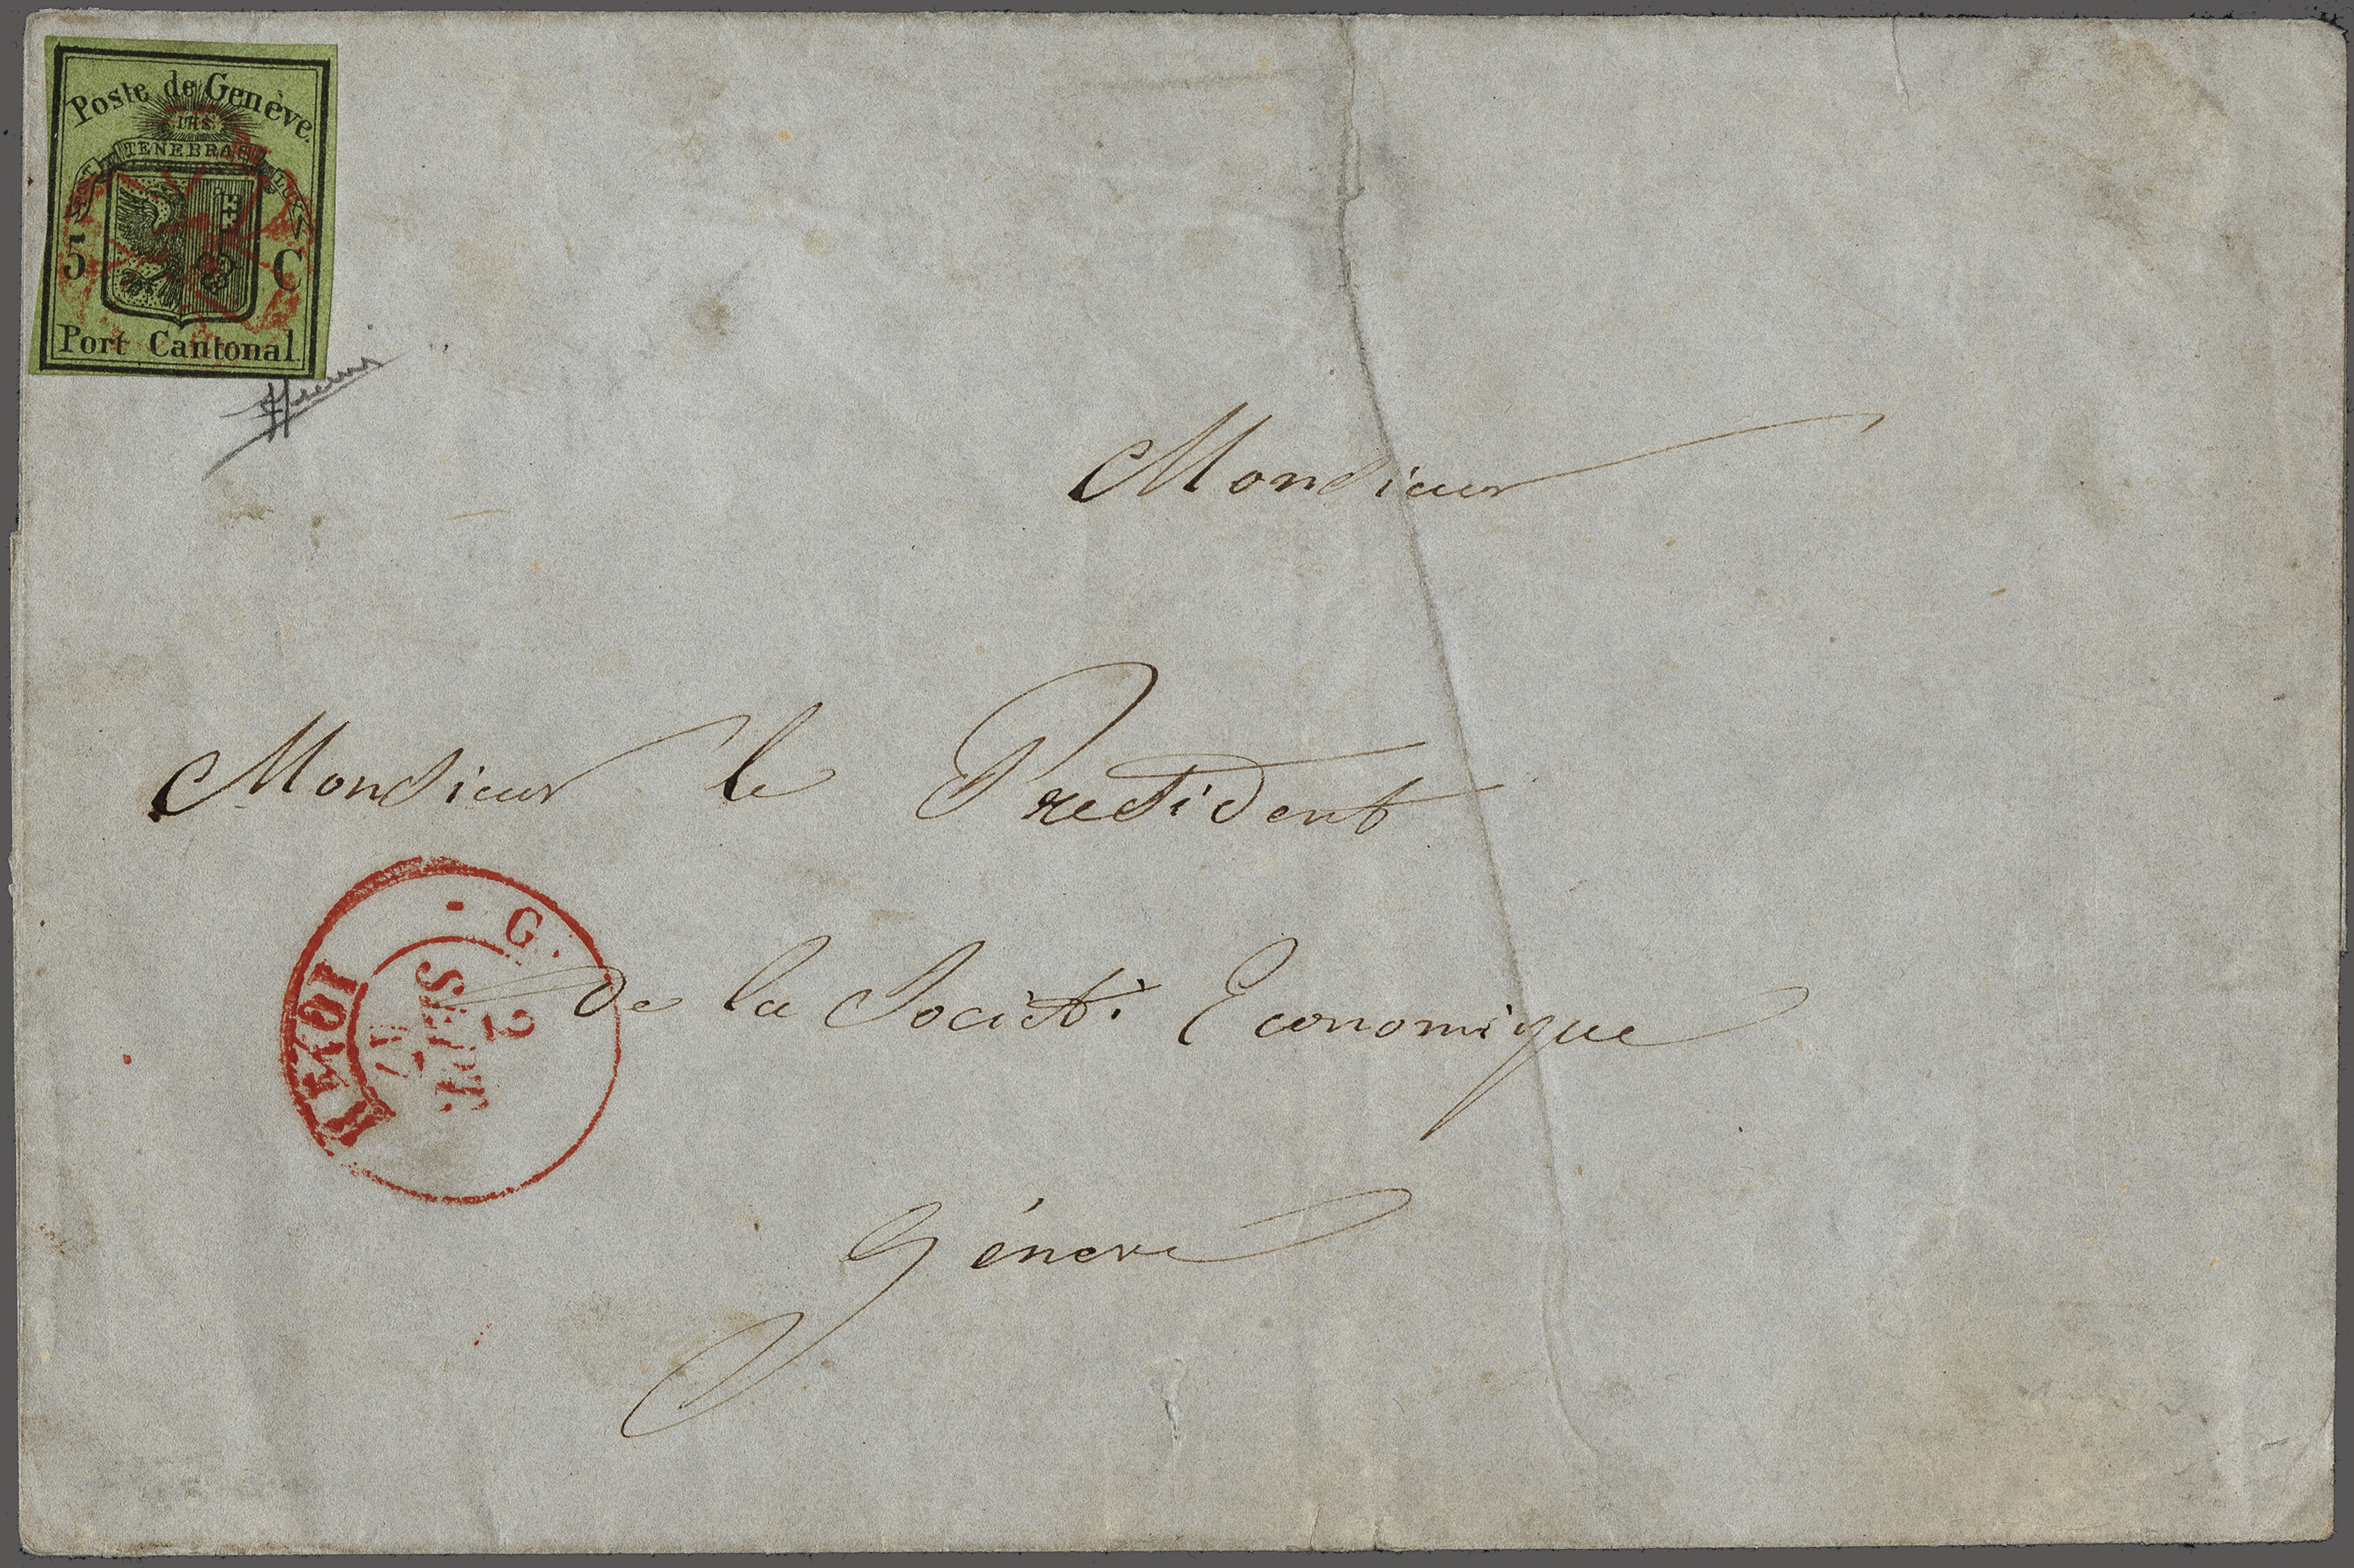 Poste de Genève.
IHS
POST TENEBRAS LUX
5 C
Port Cantonal.
Monsieur
Monsieur le President
de la Société Economique
Génève
G.
2
SEPT
47